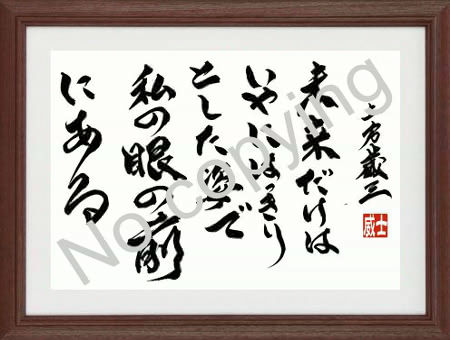 土方歳三
未来だけは
いやにはっきり
とした姿で
私の眼の前
にある
士威
No copying